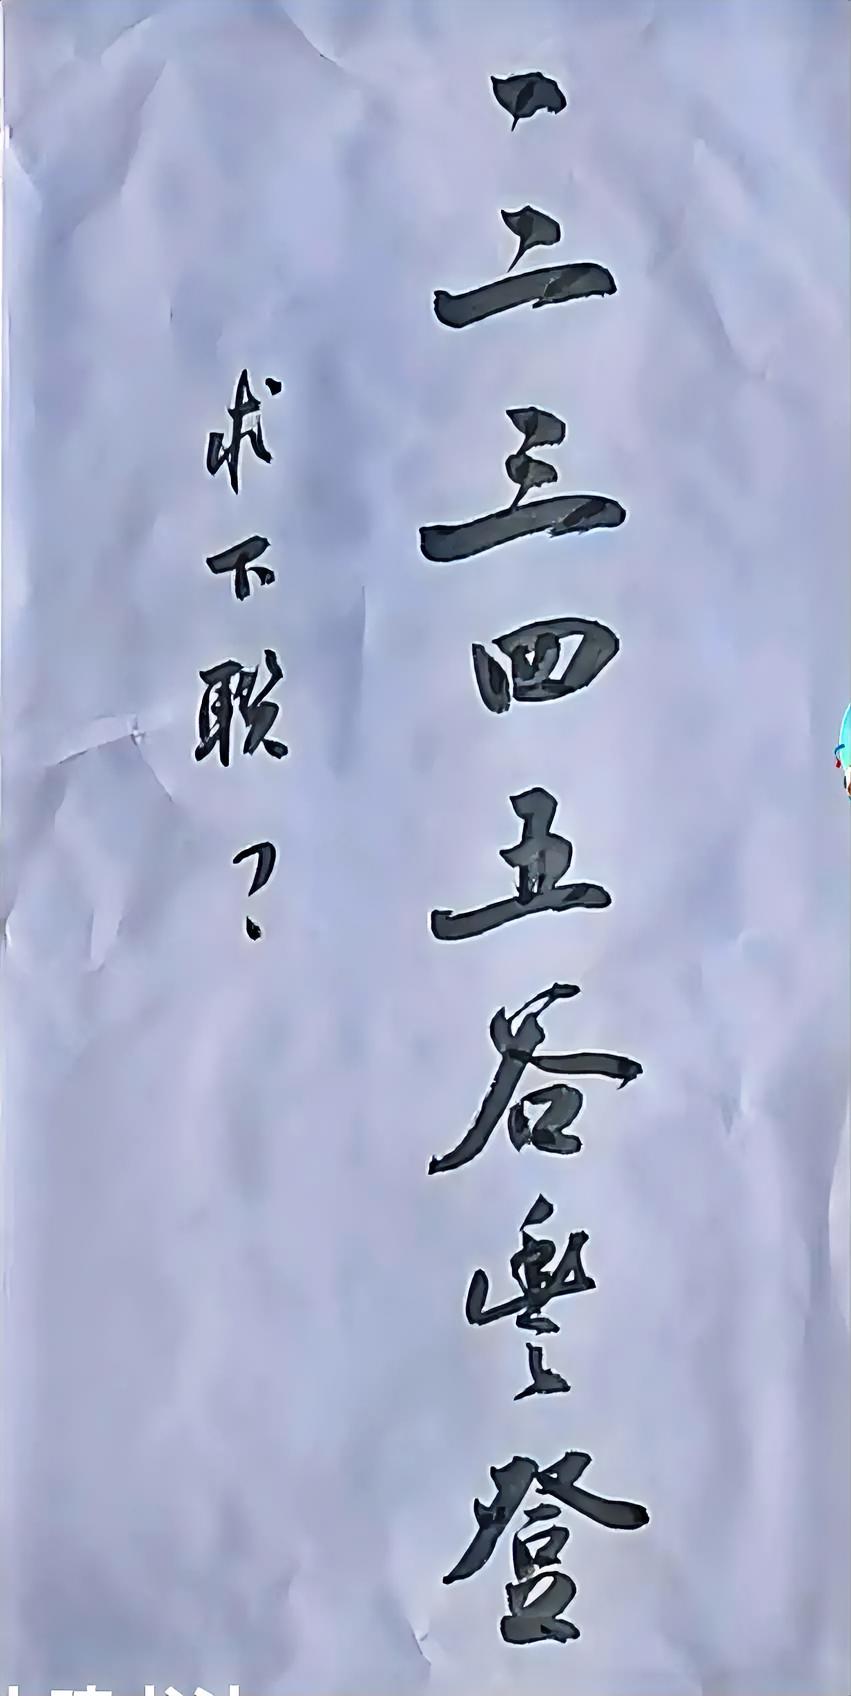 一二三四五谷豐登
求下联？